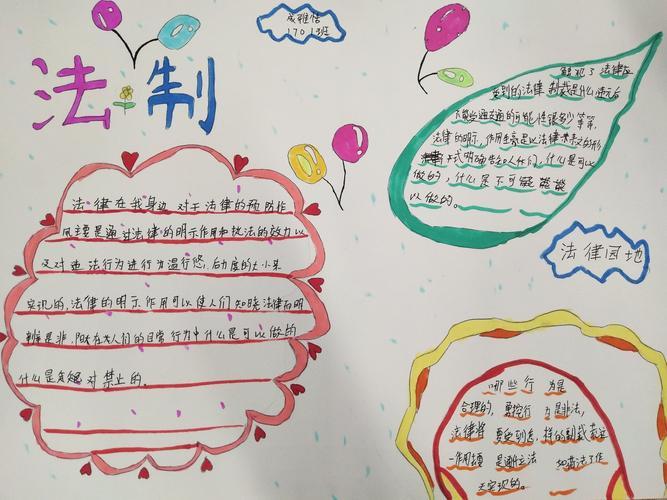 法制
成雅恬
1701班
法律在我身边 对于法律的预防作
用主要是通过法律的明示作用和执法的效力以
及对违法行为进行为温行惩,后力度的大小来
实现的,法律的明示作用可以使人们知晓法律而明
辨是非,即在人们的日常行为中什么是可以做的
什么是绝对禁上的。
触犯了法律应
受到的法律 制裁是什么违元后
不能变通的可能性很多少等等,
法律的明示,作用主亮是以法律条文的形
式明确告知人们,什么是可以
做的,什么是不可能能
以做的。
法律园地
哪些行为是
合理的,要控行为是非法,
法律将要受到怎样的制裁
一作用主要是通立法 如苟法工作
天实现的。